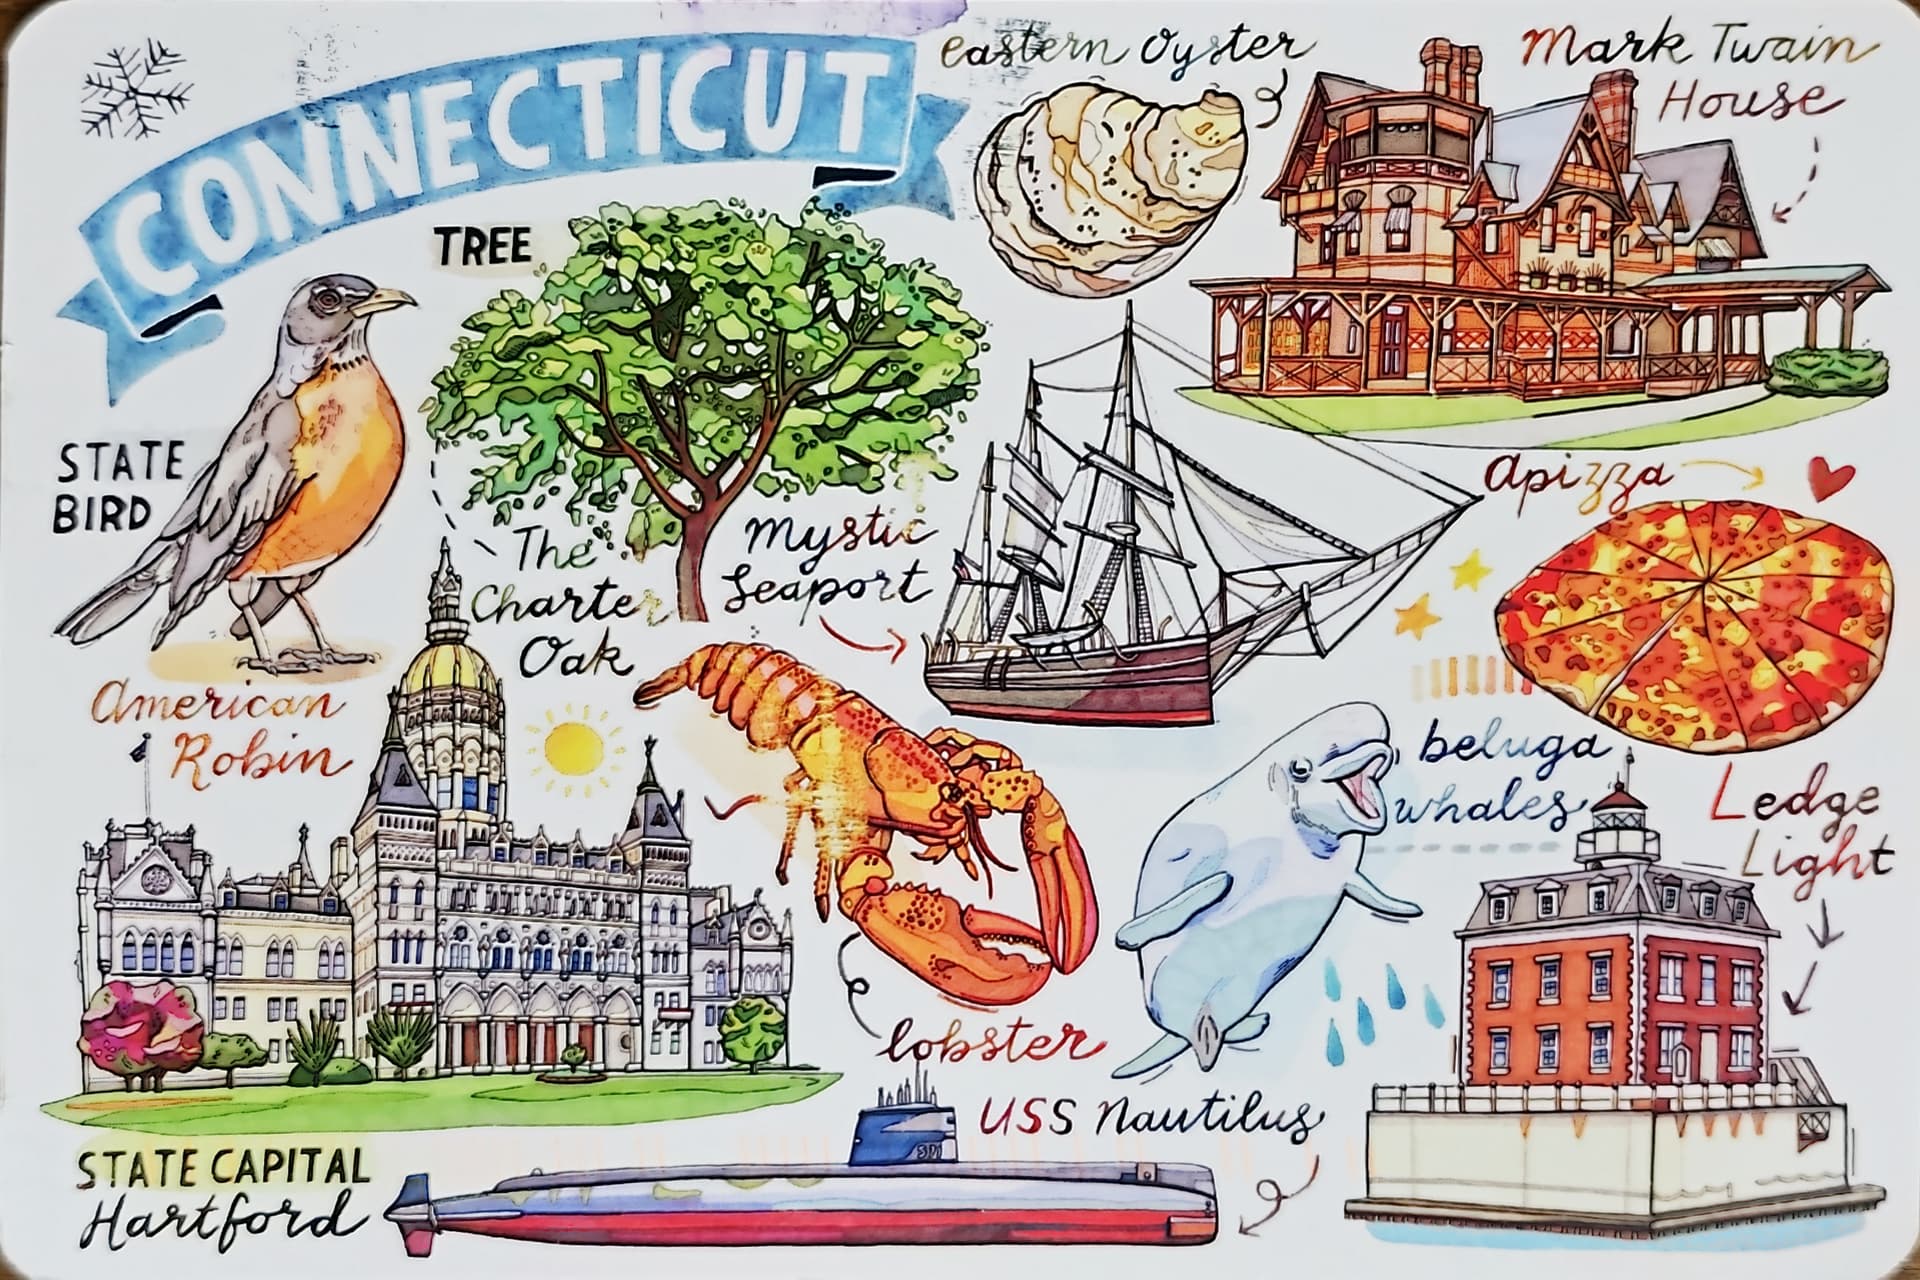 CONNECTICUT
eastern Oyster
Mark Twain
House
TREE
STATE
BIRD
apizza
The
Charter
Oak
Mystic
Seaport
American
Robin
beluga
whales
Ledge
Light
lobster
USS Nautilus
STATE CAPITAL
Hartford